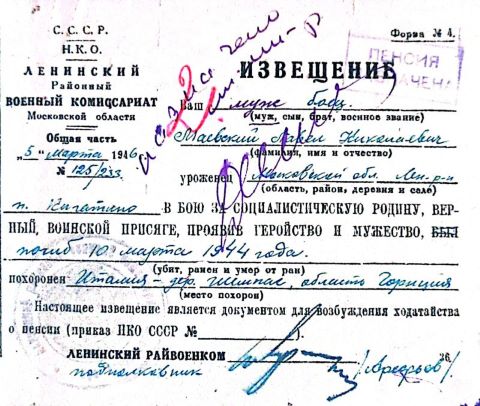 С. С. С. Р.
Форма № 4.
Н. К. О.
ПЕНСИЯ
ЛЕНИНСКИЙ
ИЗВЕЩЕНИЕ
Районный
ВОЕННЫЙ КОМИССАРИАТ
Ваш муж боец
Московской области
(муж, сын, брат, военное звание)
Общая часть
Маевский Павел Николаевич
„5" марта 1946
(фамилия, имя и отчество)
№ 125/233
уроженец Московской обл. Лен. р-н
(область, район, деревня и село)
в БОЮ ЗА СОЦИАЛИСТИЧЕСКУЮ РОДИНУ, ВЕР-
НЫЙ, ВОИНСКОЙ ПРИСЯГЕ, ПРОЯВИВ ГЕРОЙСТВО И МУЖЕСТВО, БЫЛ
погиб 10 марта 1944 года.
(убит, ранен и умер от ран)
похоронен Италия - дер. Шмпас, область Гориция
(место похорон)
Настоящее извещение является документом для возбуждения ходатайства
о пенсии (приказ НКО СССР №
ЛЕНИНСКИЙ РАЙВОЕНКОМ
подполковник